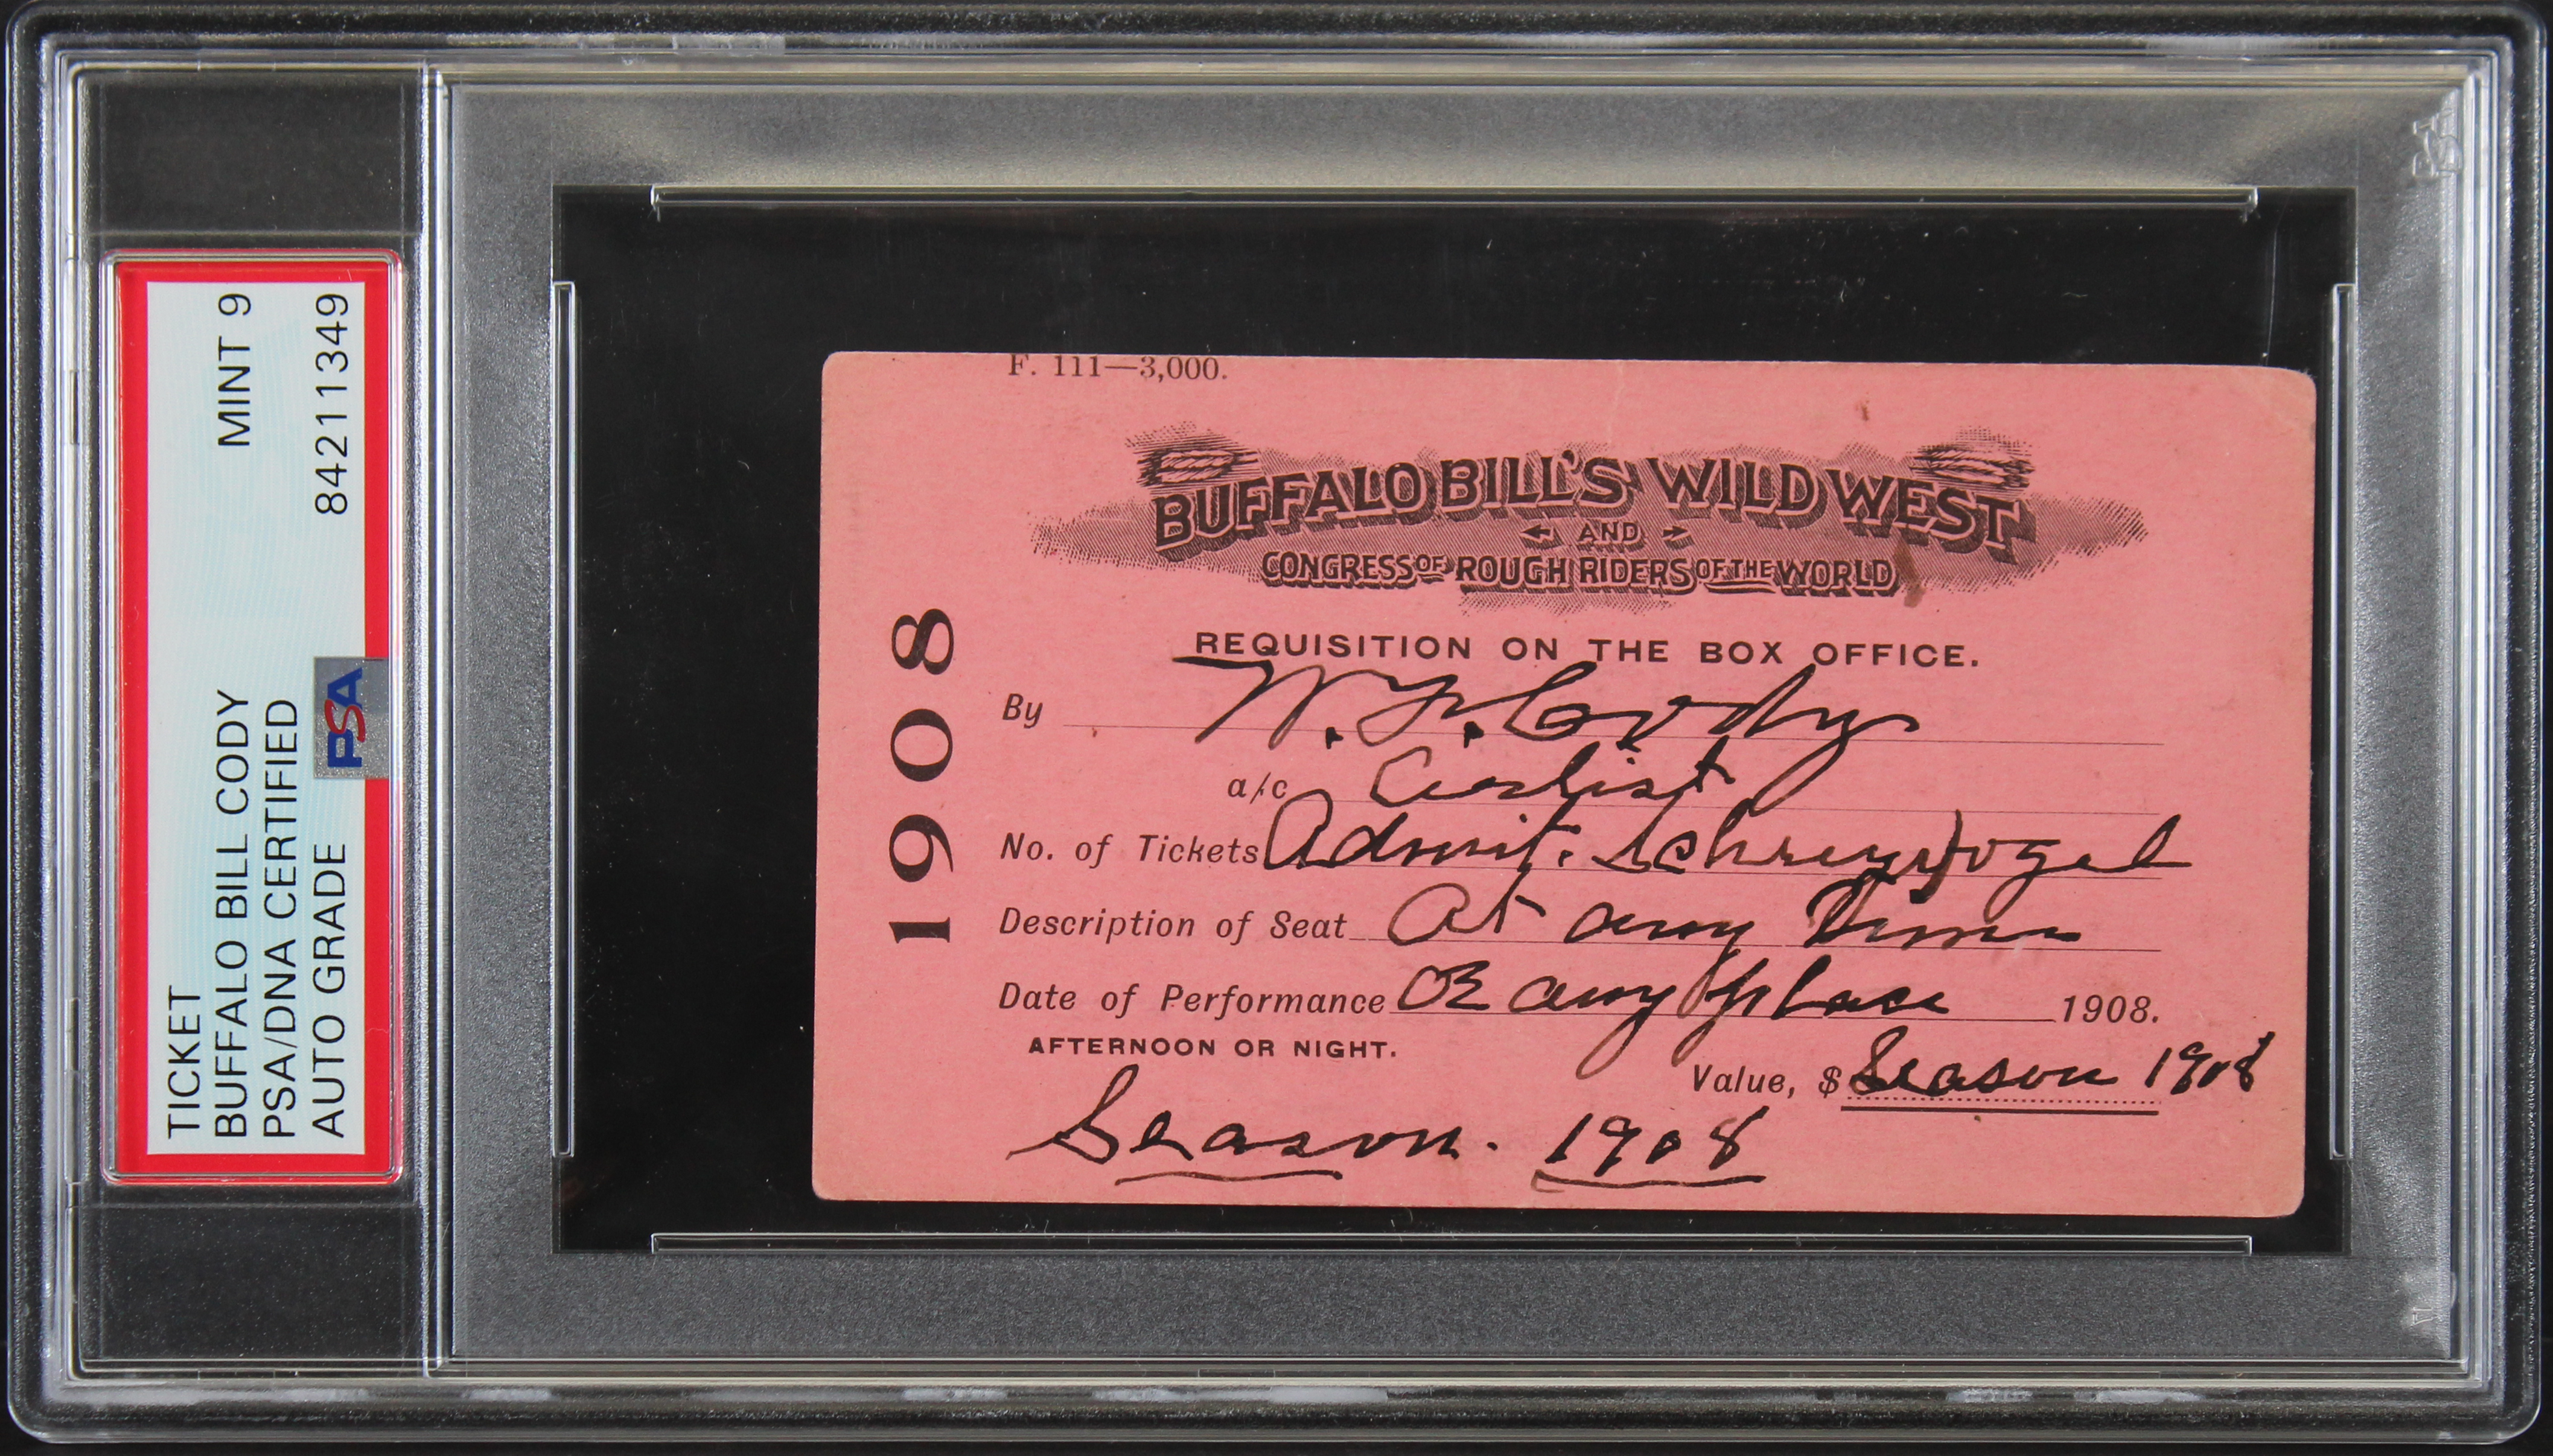 TICKET MINT 9
BUFFALO BILL CODY
PSA/DNA CERTIFIED
AUTO GRADE 84211349
PSA
F. 111—3,000.
BUFFALO BILL'S WILD WEST
AND
CONGRESS OF ROUGH RIDERS OF THE WORLD
1908
REQUISITION ON THE BOX OFFICE.
By W. F. Cody
a/c Artist
No. of Tickets Admit. Schreyvogel
Description of Seat At any Time
Date of Performance OR any place 1908.
AFTERNOON OR NIGHT.
Value, $ Season 1908
Season. 1908